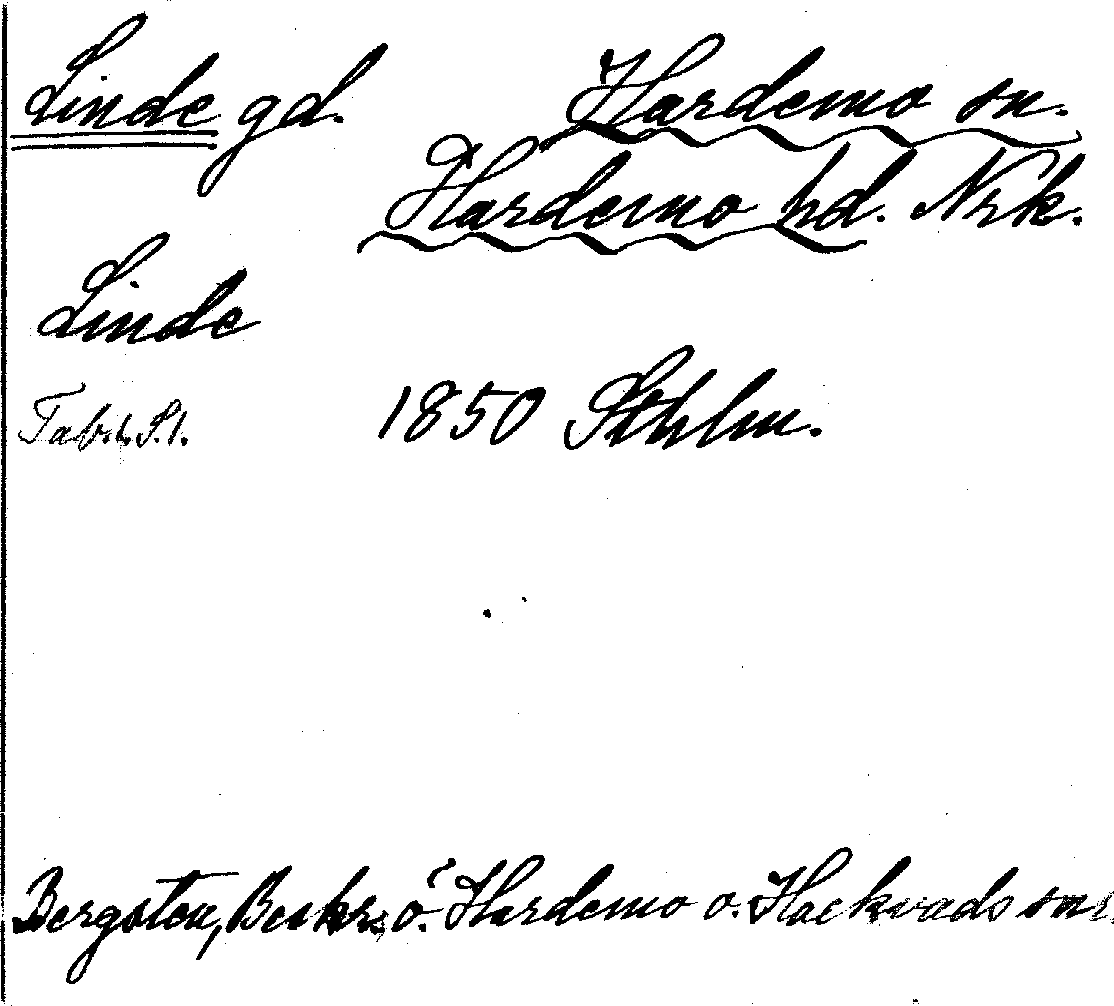 Linde gd. Hardemo sn.
Hardemo hd. Nrk.
Linde
1850 Sthlm.
Bergsten, Beskr. ö. Hardemo o. Hackvads snr.